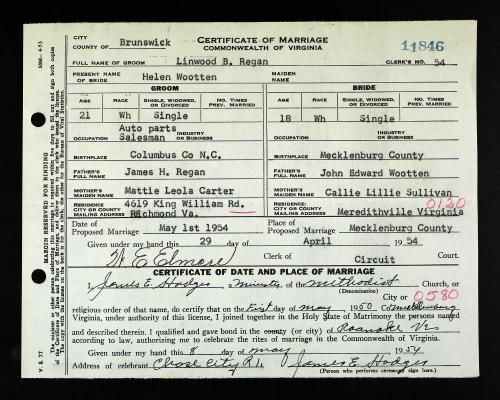 CITY
COUNTY OF Brunswick
CERTIFICATE OF MARRIAGE
COMMONWEALTH OF VIRGINIA
11846
FULL NAME OF GROOM Linwood B. Regan CLERK'S NO. 54
PRESENT NAME OF BRIDE Helen Wootten MAIDEN NAME
GROOM BRIDE
AGE RACE SINGLE, WIDOWED, OR DIVORCED NO. TIMES PREV. MARRIED AGE RACE SINGLE, WIDOWED, OR DIVORCED NO. TIMES PREV. MARRIED
21 Wh Single 18 Wh Single
OCCUPATION Auto parts Salesman INDUSTRY OR BUSINESS OCCUPATION INDUSTRY OR BUSINESS
BIRTHPLACE Columbus Co N.C. BIRTHPLACE Mecklenburg County
FATHER'S FULL NAME James H. Regan FATHER'S FULL NAME John Edward Wootten
MOTHER'S MAIDEN NAME Mattie Leola Carter MOTHER'S MAIDEN NAME Callie Lillie Sullivan
RESIDENCE: CITY OR COUNTY MAILING ADDRESS 4619 King William Rd. Richmond Va. RESIDENCE: CITY OR COUNTY MAILING ADDRESS Meredithville Virginia 0120
Date of Proposed Marriage May 1st 1954 Place of Proposed Marriage Mecklenburg County
Given under my hand this 29 day of April, 1954.
W E Elmore Clerk of Circuit Court.
CERTIFICATE OF DATE AND PLACE OF MARRIAGE
I, James E. Hodges, a Minister of the Methodist Church, or
(Denomination)
City or 0580
religious order of that name, do certify that on the First day of May 1950 Co Mecklenburg
Virginia, under authority of this license, I joined together in the Holy State of Matrimony the persons named
and described therein. I qualified and gave bond in the county (or city) of Roanoke Va
according to law, authorizing me to celebrate the rites of marriage in the Commonwealth of Virginia.
Given under my hand this 8 day of May 1954
Address of celebrant Chase City R1. James E Hodges
(Person who performs ceremony sign here.)
MARGIN RESERVED FOR BINDING
V. S. 37